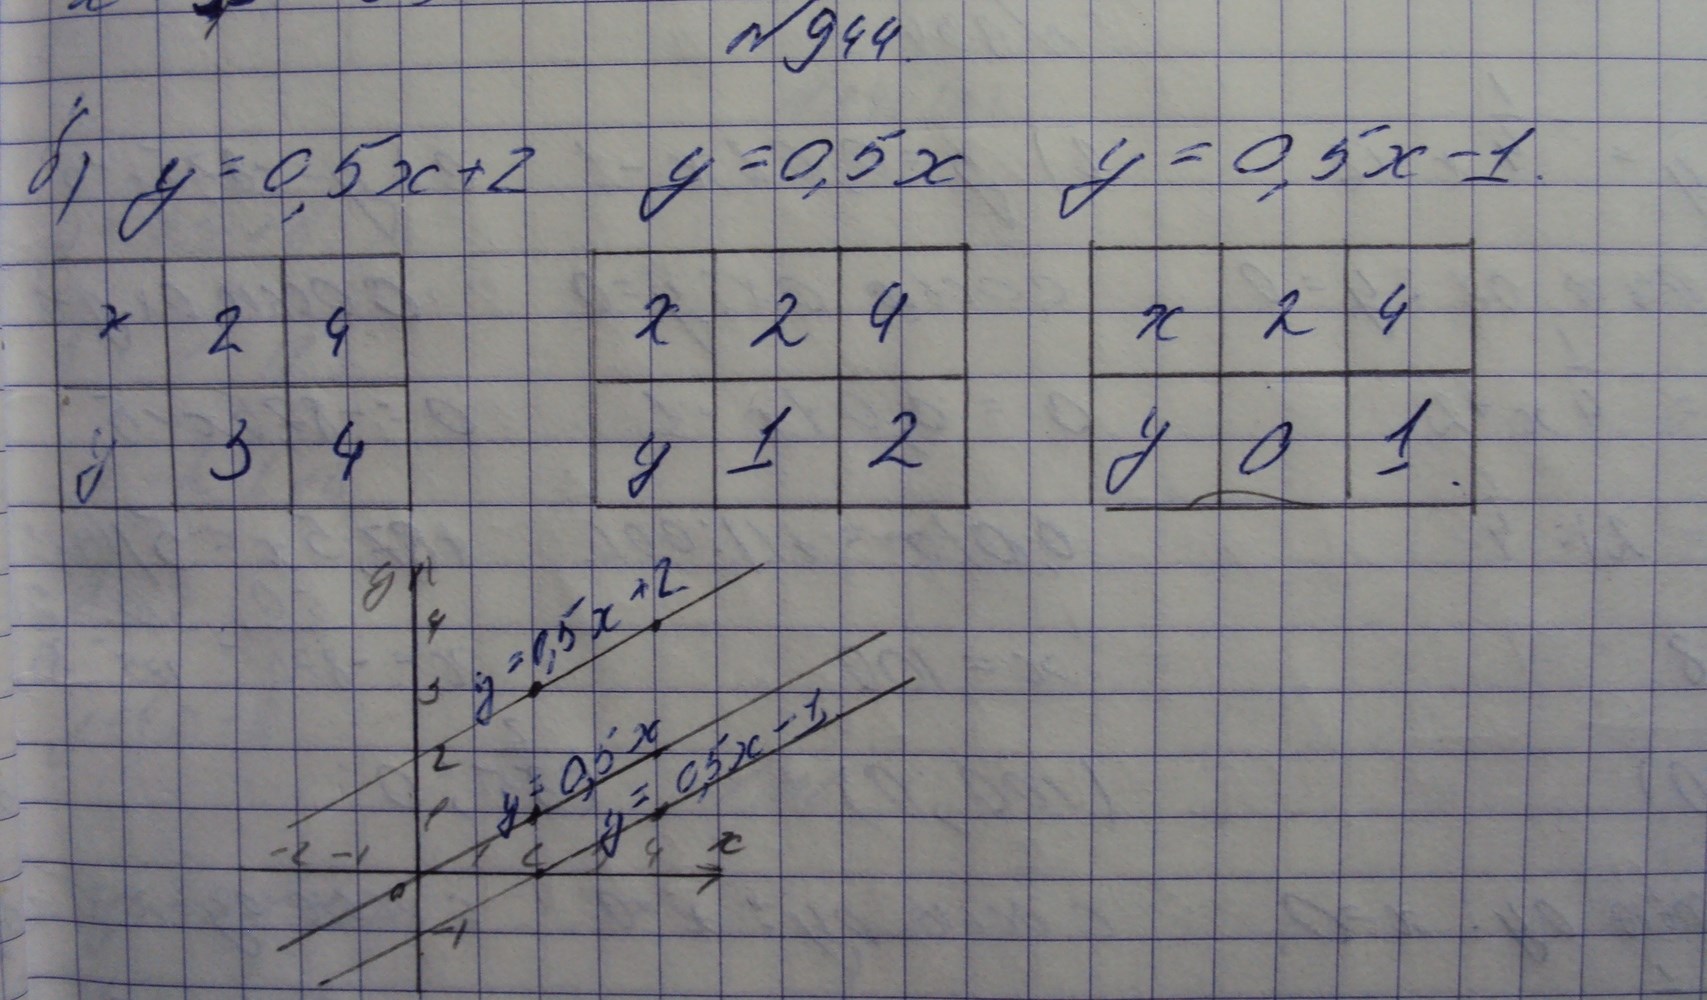 №944.
б) y=0,5x+2 y=0,5x y=0,5x-1.
x 2 4 x 2 4 x 2 4
y 3 4 y 1 2 y 0 1
y
4
y=0,5x+2
3
2
y=0,5x
y=0,5x-1
1
-2 -1 1 2 3 4 x
0
-1